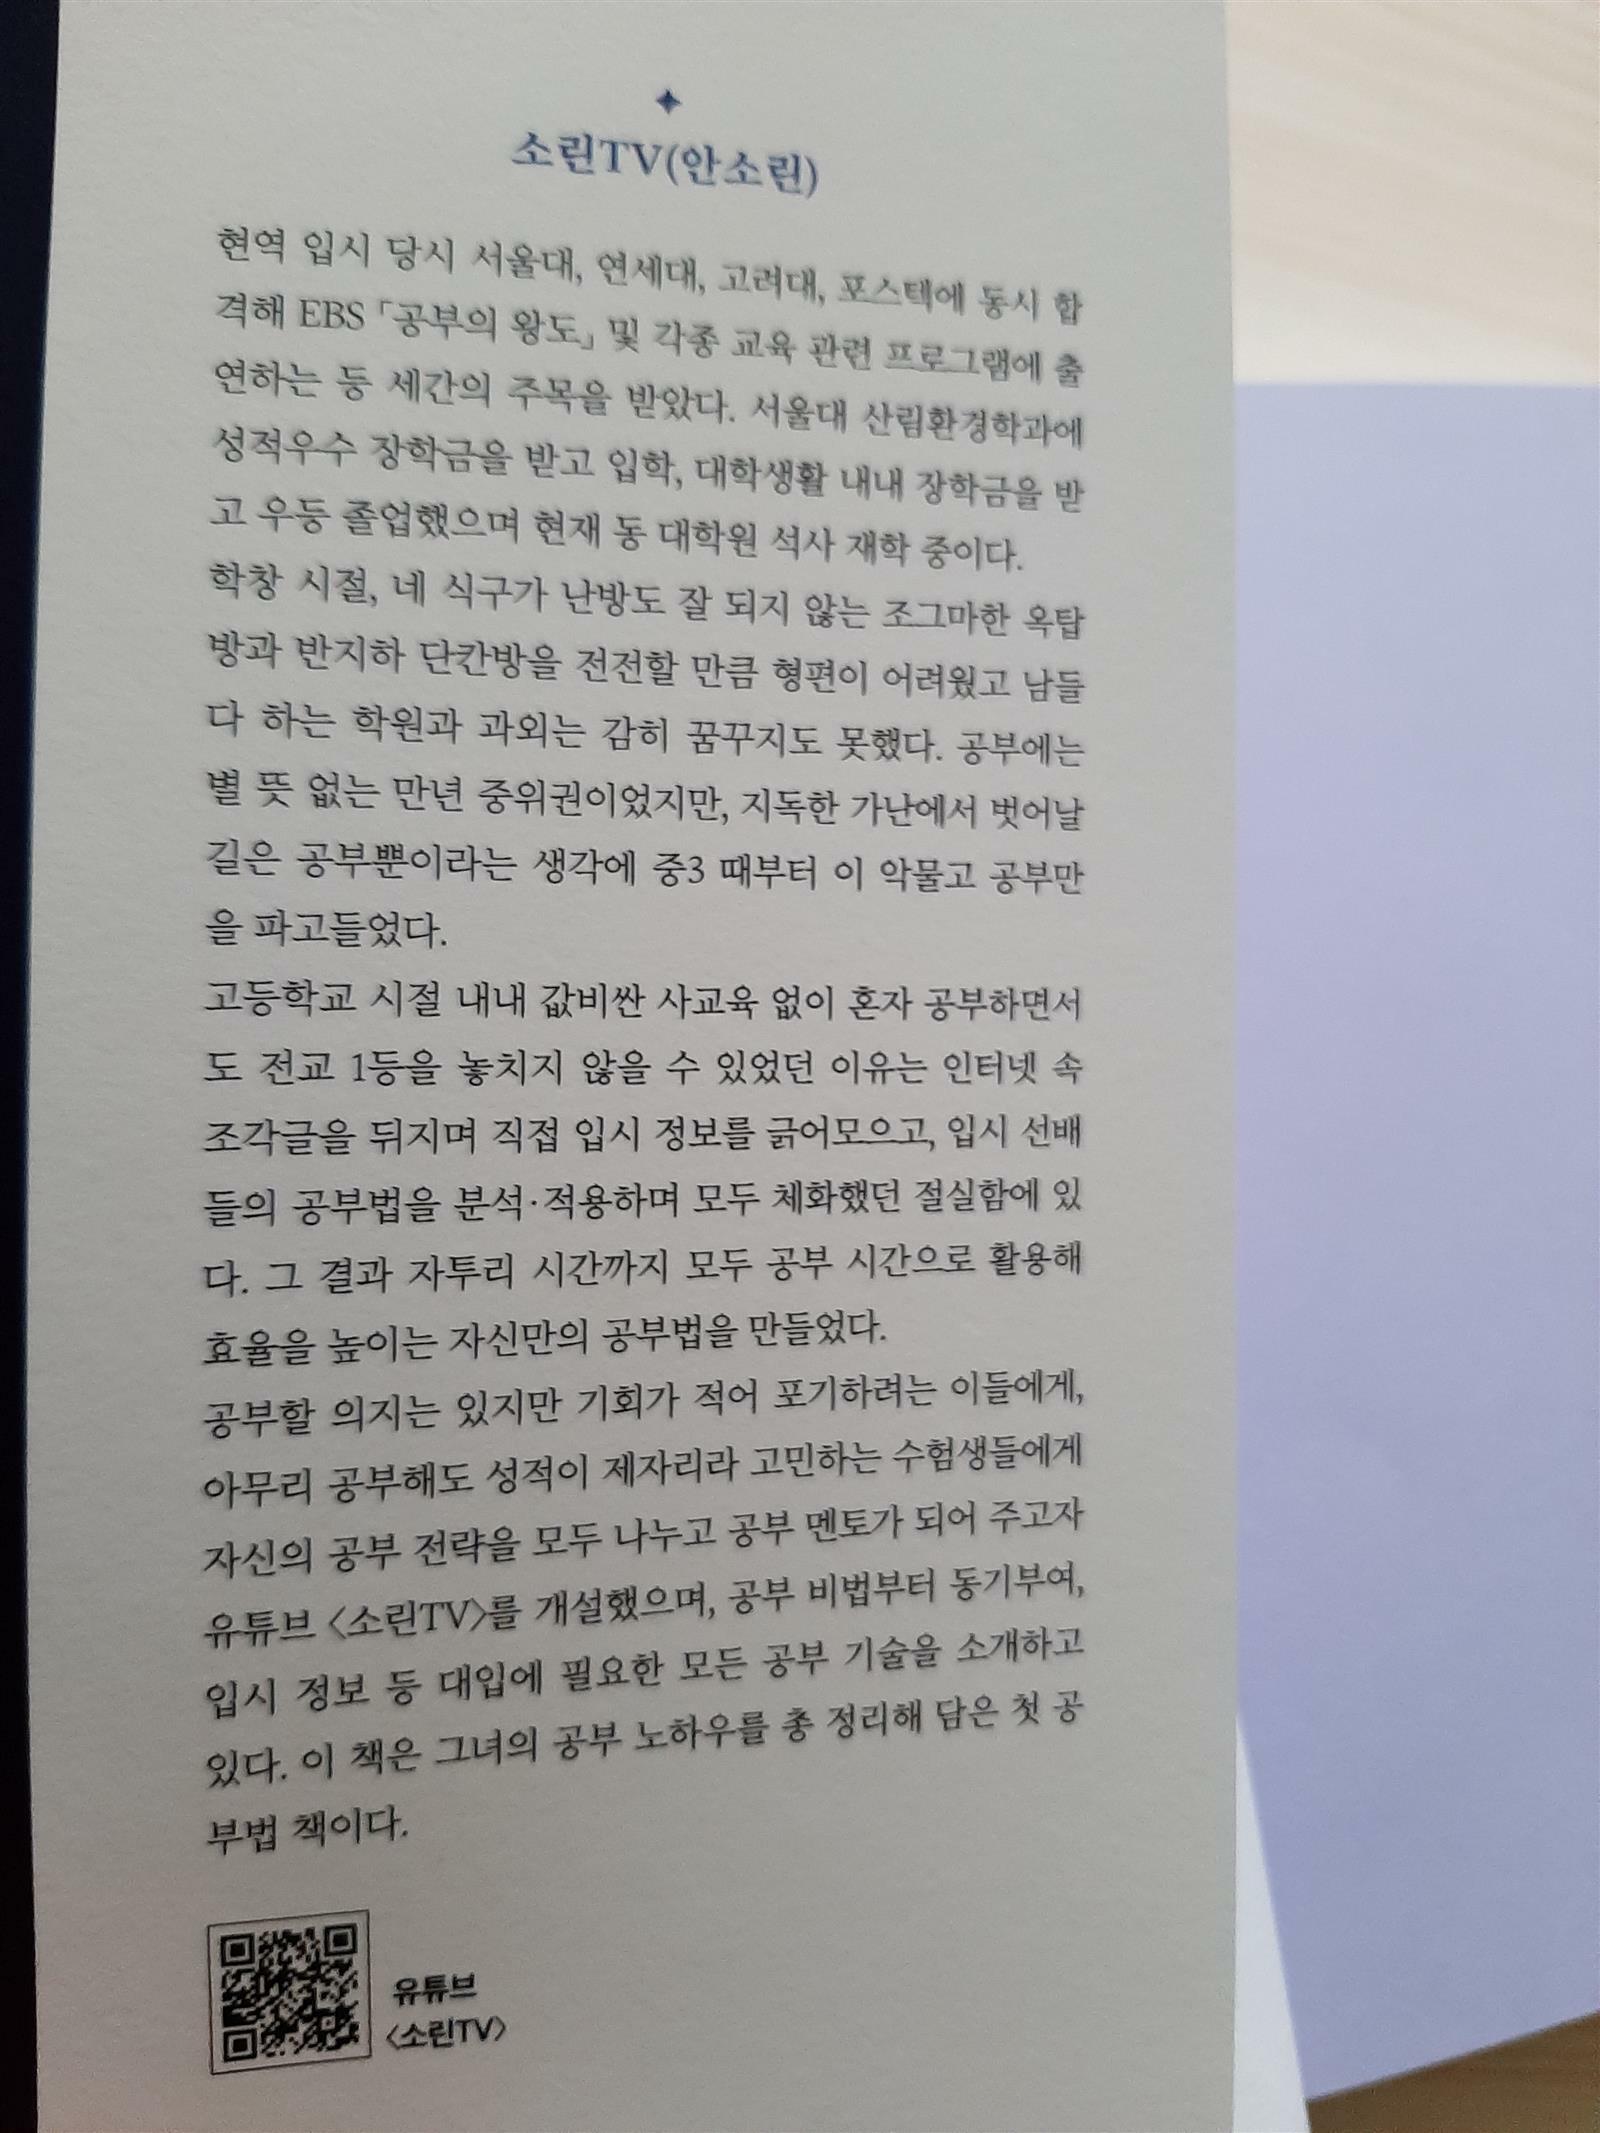 소린TV(안소린)
현역 입시 당시 서울대, 연세대, 고려대, 포스텍에 동시 합
격해 EBS 「공부의 왕도」 및 각종 교육 관련 프로그램에 출
연하는 등 세간의 주목을 받았다. 서울대 산림환경학과에
성적우수 장학금을 받고 입학, 대학생활 내내 장학금을 받
고 우등 졸업했으며 현재 동 대학원 석사 재학 중이다.
학창 시절, 네 식구가 난방도 잘 되지 않는 조그마한 옥탑
방과 반지하 단칸방을 전전할 만큼 형편이 어려웠고 남들
다 하는 학원과 과외는 감히 꿈꾸지도 못했다. 공부에는
별 뜻 없는 만년 중위권이었지만, 지독한 가난에서 벗어날
길은 공부뿐이라는 생각에 중3 때부터 이 악물고 공부만
을 파고들었다.
고등학교 시절 내내 값비싼 사교육 없이 혼자 공부하면서
도 전교 1등을 놓치지 않을 수 있었던 이유는 인터넷 속
조각글을 뒤지며 직접 입시 정보를 긁어모으고, 입시 선배
들의 공부법을 분석·적용하며 모두 체화했던 절실함에 있
다. 그 결과 자투리 시간까지 모두 공부 시간으로 활용해
효율을 높이는 자신만의 공부법을 만들었다.
공부할 의지는 있지만 기회가 적어 포기하려는 이들에게,
아무리 공부해도 성적이 제자리라 고민하는 수험생들에게
자신의 공부 전략을 모두 나누고 공부 멘토가 되어 주고자
유튜브 〈소린TV〉를 개설했으며, 공부 비법부터 동기부여,
입시 정보 등 대입에 필요한 모든 공부 기술을 소개하고
있다. 이 책은 그녀의 공부 노하우를 총 정리해 담은 첫 공
부법 책이다.
유튜브
〈소린TV〉